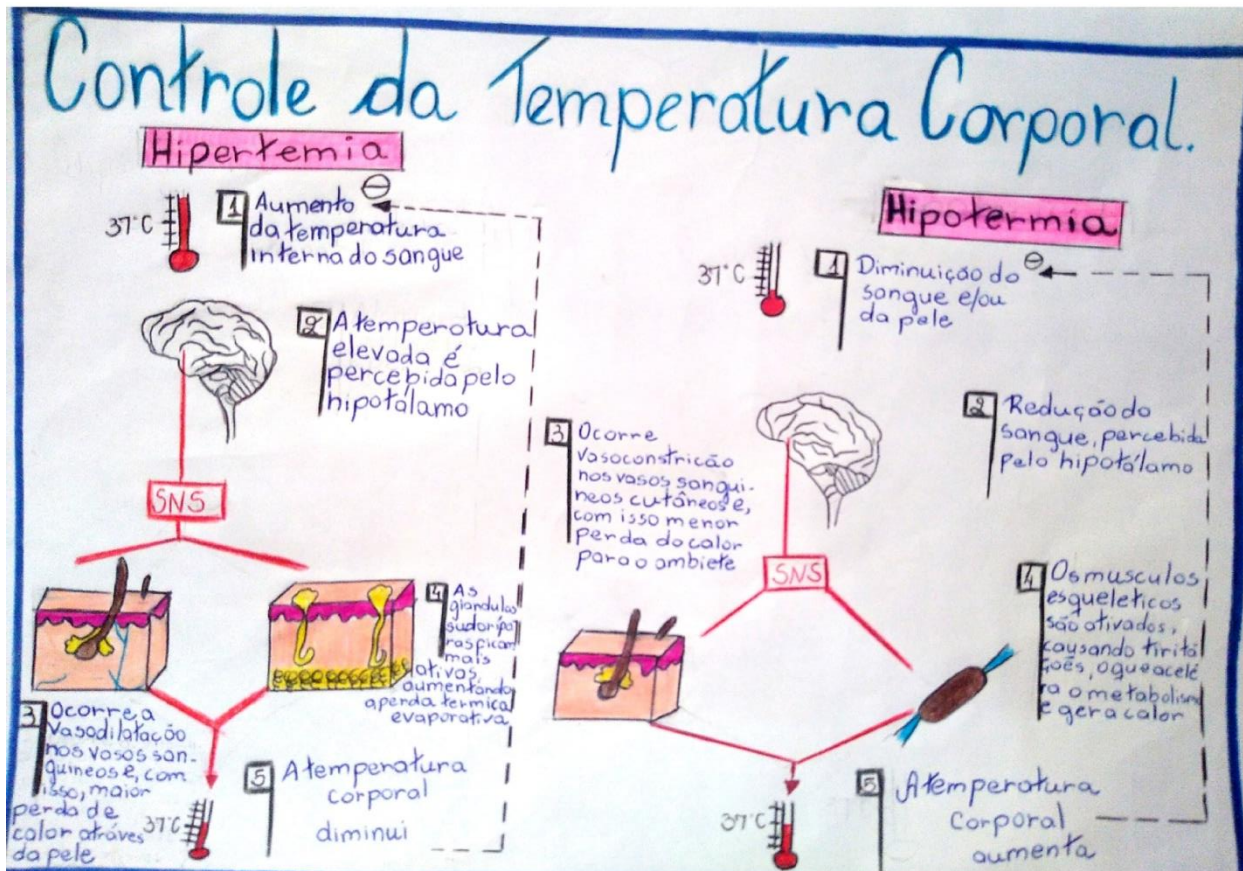 Controle da Temperatura Corporal.
Hipertemia
37°C
1 Aumento
da temperatura
interna do sangue
⊖
2 A temperatura
elevada é
percebida pelo
hipotálamo
SNS
3 Ocorre a
vasodilatação
nos vasos san-
guineos e, com
isso, maior
perda de
calor atráves
da pele
4 As
glandulas
sudorípa
ras ficam
mais
ativas,
aumentando
a perda termica
evaporativa
37°C
5 A temperatura
corporal
diminui
Hipotermia
37°C
1 Diminuição do
sangue e/ou
da pele
⊖
2 Redução do
sangue, percebida
pelo hipotálamo
3 Ocorre
vasoconstricão
nos vasos sangui-
neos cutâneos e,
com isso menor
perda do calor
para o ambiete
SNS
4 Os musculos
esqueleticos
são ativados,
causando tiritá
ções, o que acelé
ra o metabolismo
e gera calor
37°C
5 A temperatura
corporal
aumenta